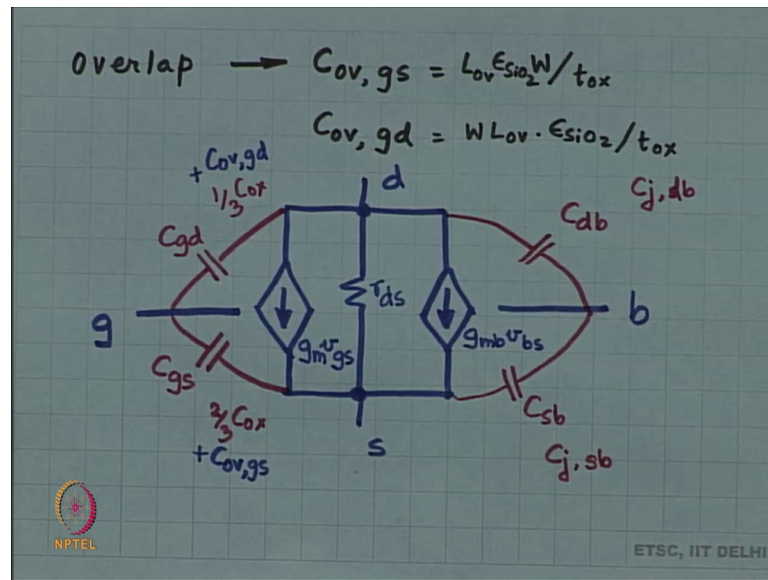 overlap → Cov,gs = Lov ϵSiO₂ W/tox
Cov,gd = W Lov · ϵSiO₂/tox
+Cov,gd
1/3 Cox
d
Cj,db
Cgd
Cdb
rds
g
gm vgs
gmb vbs
b
Cgs
Csb
2/3 Cox
+Cov,gs
s
Cj,sb
NPTEL
ETSC, IIT DELHI